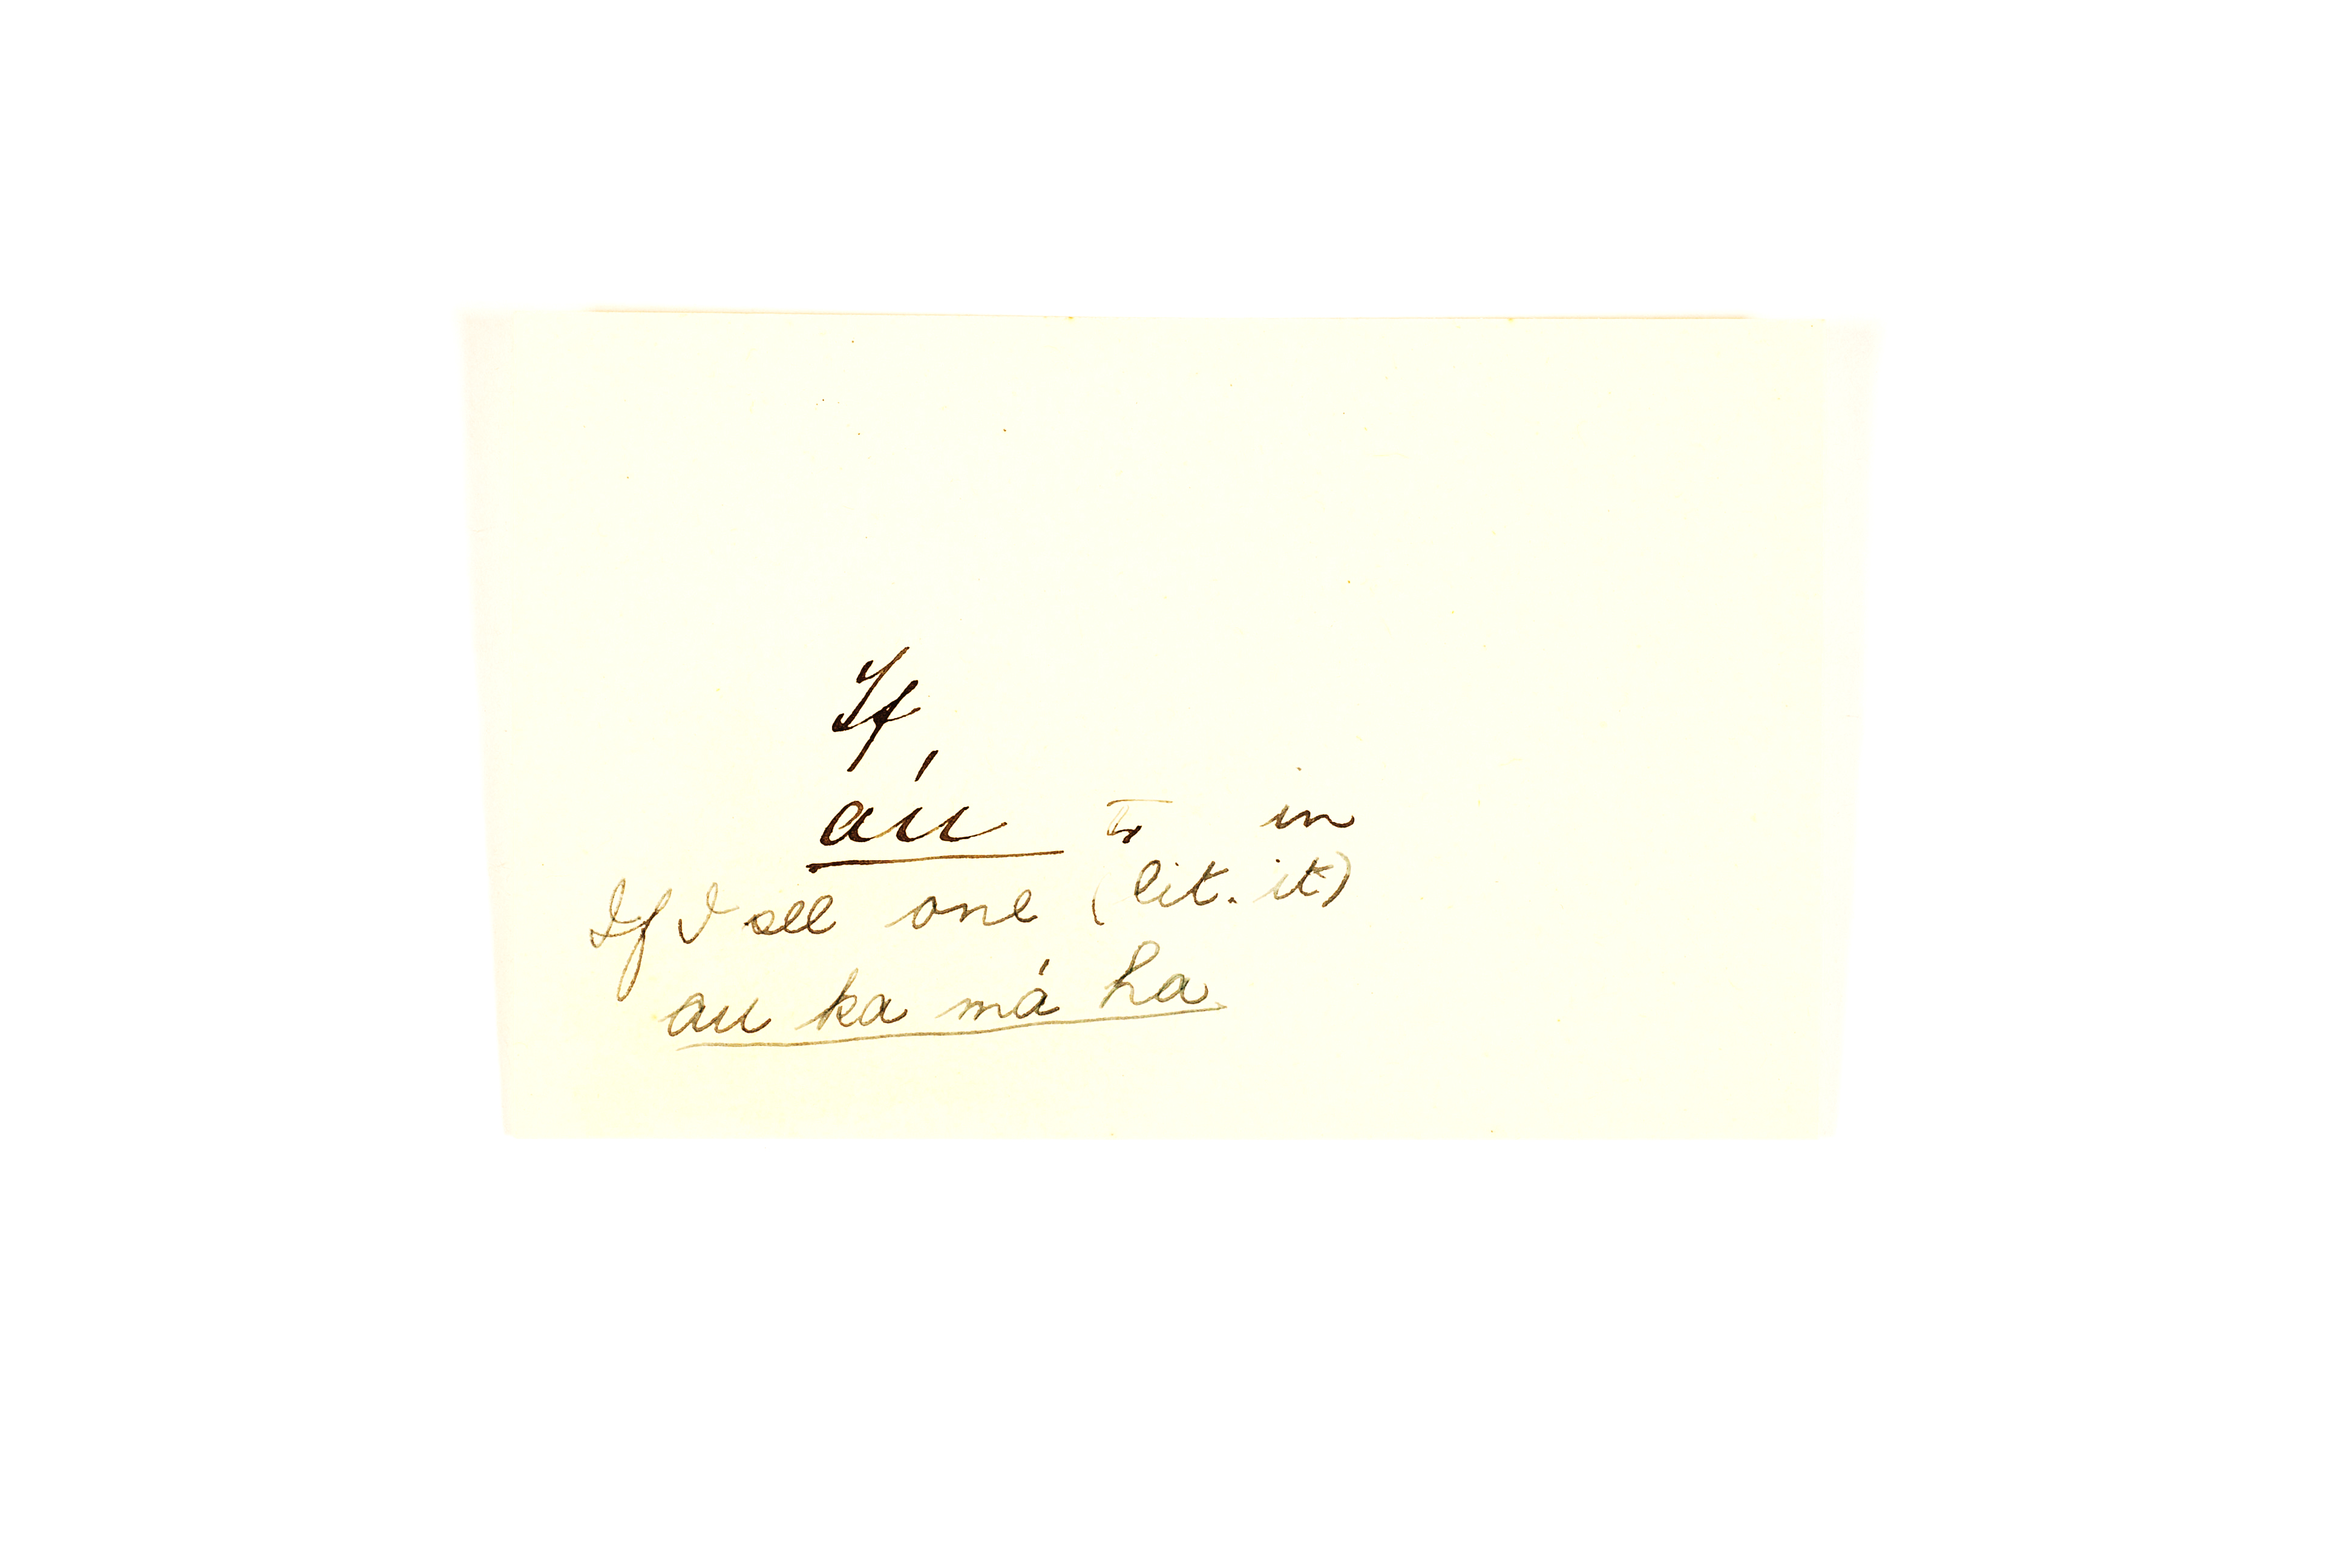 If
aú in
If I see one (lit. it)
au ka má ha